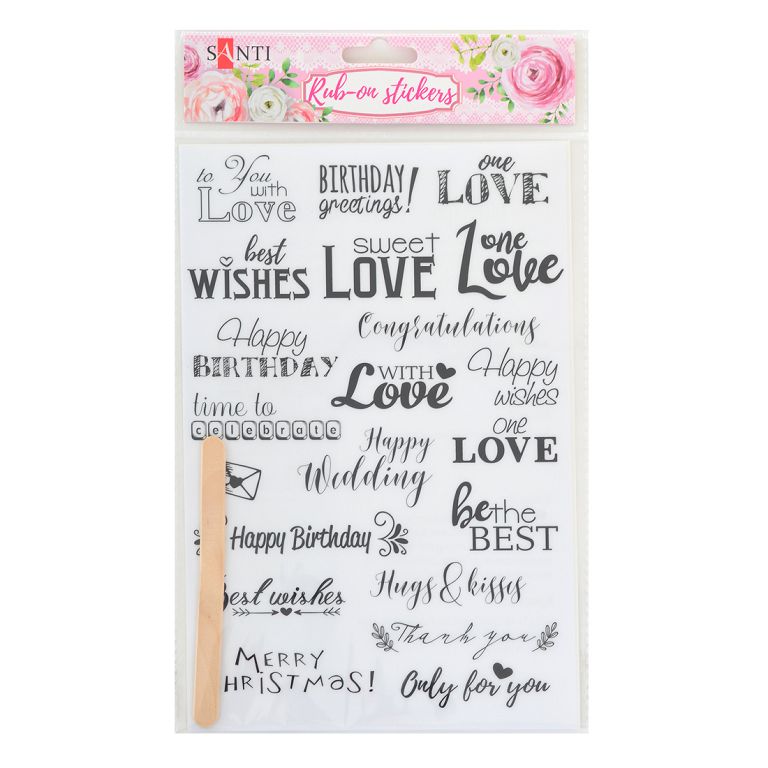 SANTI
Rub-on stickers
to You
with
Love
BIRTHDAY
greetings!
one
LOVE
best
WISHES
sweet
LOVE
one
Love
Happy
BIRTHDAY
Congratulations
WITH
Love
Happy
wishes
time to
celebrate
Happy
Wedding
one
LOVE
be the
BEST
Happy Birthday
Best wishes
Hugs & kisses
Thank you
MERRY
CHRISTMAS!
Only for you